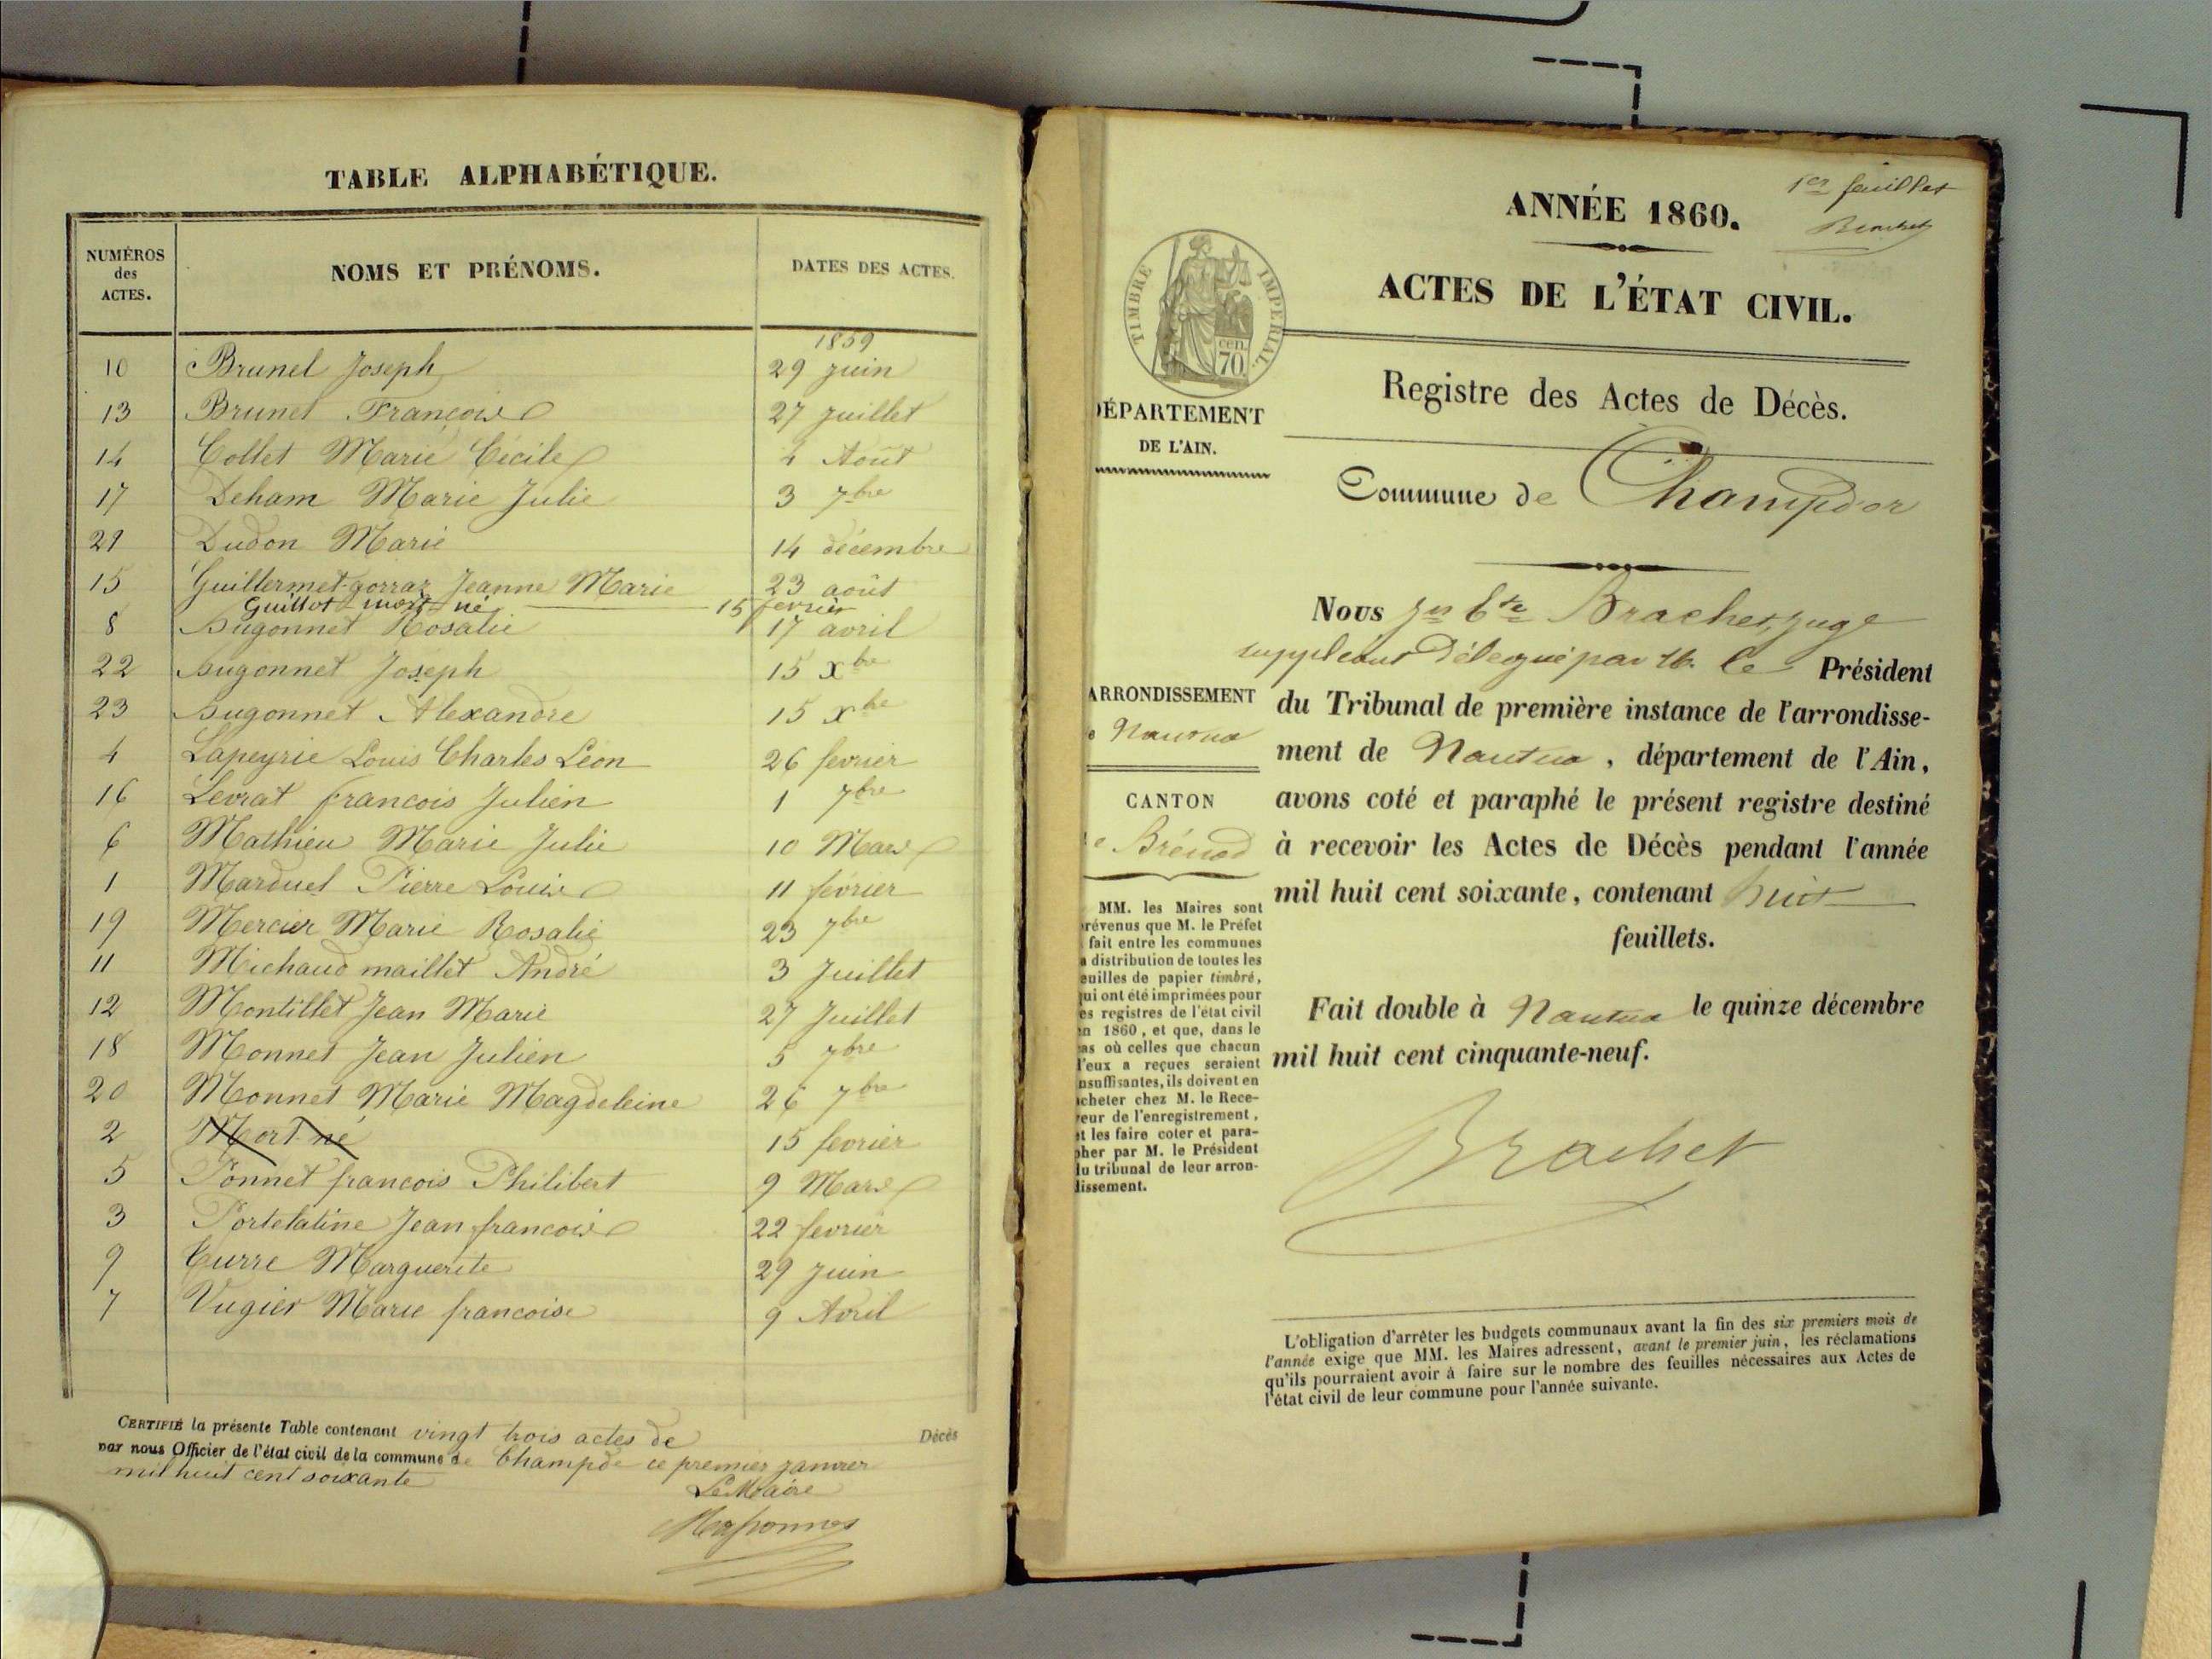 TABLE ALPHABÉTIQUE.
NUMÉROS des ACTES. NOMS ET PRÉNOMS. DATES DES ACTES.
1859
10 Brunel Joseph 29 juin
13 Brunet François 27 juillet
14 Collet Marie Cécile 4 Août
17 Deham Marie Julie 3 7bre
21 Dudon Marie 14 décembre
15 Guillermet-gorraz Jeanne Marie 23 août
Guillot mort-né 15 fevrier
8 Hugonnet Rosalie 17 avril
22 hugonnet Joseph 15 Xbre
23 hugonnet Alexandre 15 Xbre
4 Lapeyrie Louis Charles Léon 26 fevrier
16 Levrat francois Julien 1 7bre
6 Mathieu Marie Julie 10 Mars
1 Marduel Pierre Louis 11 février
19 Mercier Marie Rosalie 23 7bre
11 Michaud maillet André 3 Juillet
12 Montillet Jean Marie 27 Juillet
18 Monnet Jean Julien 5 7bre
20 Monnet Marie Magdeleine 26 7bre
2 Mort-né 15 fevrier
5 Ponnet francois Philibert 9 Mars
3 Portelatine Jean francois 22 fevrier
9 Curre Marguerite 29 juin
7 Vugier Marie francoise 9 Avril
CERTIFIÉ la présente Table contenant vingt trois actes de Décès
par nous Officier de l'état civil de la commune de Champd ce premier janvier
mil huit cent soixante
Le Maire
1er feuillet
Brachet
ANNÉE 1860.
ACTES DE L'ÉTAT CIVIL.
TIMBRE IMPERIAL.
70 cen.
Registre des Actes de Décès.
DÉPARTEMENT
DE L'AIN.
Commune de Champdor
Nous Jn Bte Brachet, juge
suppléant délégué par M. le Président
du Tribunal de première instance de l'arrondisse-
ment de Nantua, département de l'Ain,
avons coté et paraphé le présent registre destiné
à recevoir les Actes de Décès pendant l'année
mil huit cent soixante, contenant huit
feuillets.
Fait double à Nantua le quinze décembre
mil huit cent cinquante-neuf.
Brachet
ARRONDISSEMENT
e Nantua
CANTON
e Brénod
MM. les Maires sont
révenus que M. le Préfet
fait entre les communes
a distribution de toutes les
euilles de papier timbré,
qui ont été imprimées pour
es registres de l'état civil
en 1860, et que, dans le
cas où celles que chacun
d'eux a reçues seraient
nsuffisantes, ils doivent en
acheter chez M. le Rece-
veur de l'enregistrement,
et les faire coter et para-
pher par M. le Président
du tribunal de leur arron-
dissement.
L'obligation d'arrêter les budgets communaux avant la fin des six premiers mois de
l'année exige que MM. les Maires adressent, avant le premier juin, les réclamations
qu'ils pourraient avoir à faire sur le nombre des feuilles nécessaires aux Actes de
l'état civil de leur commune pour l'année suivante.